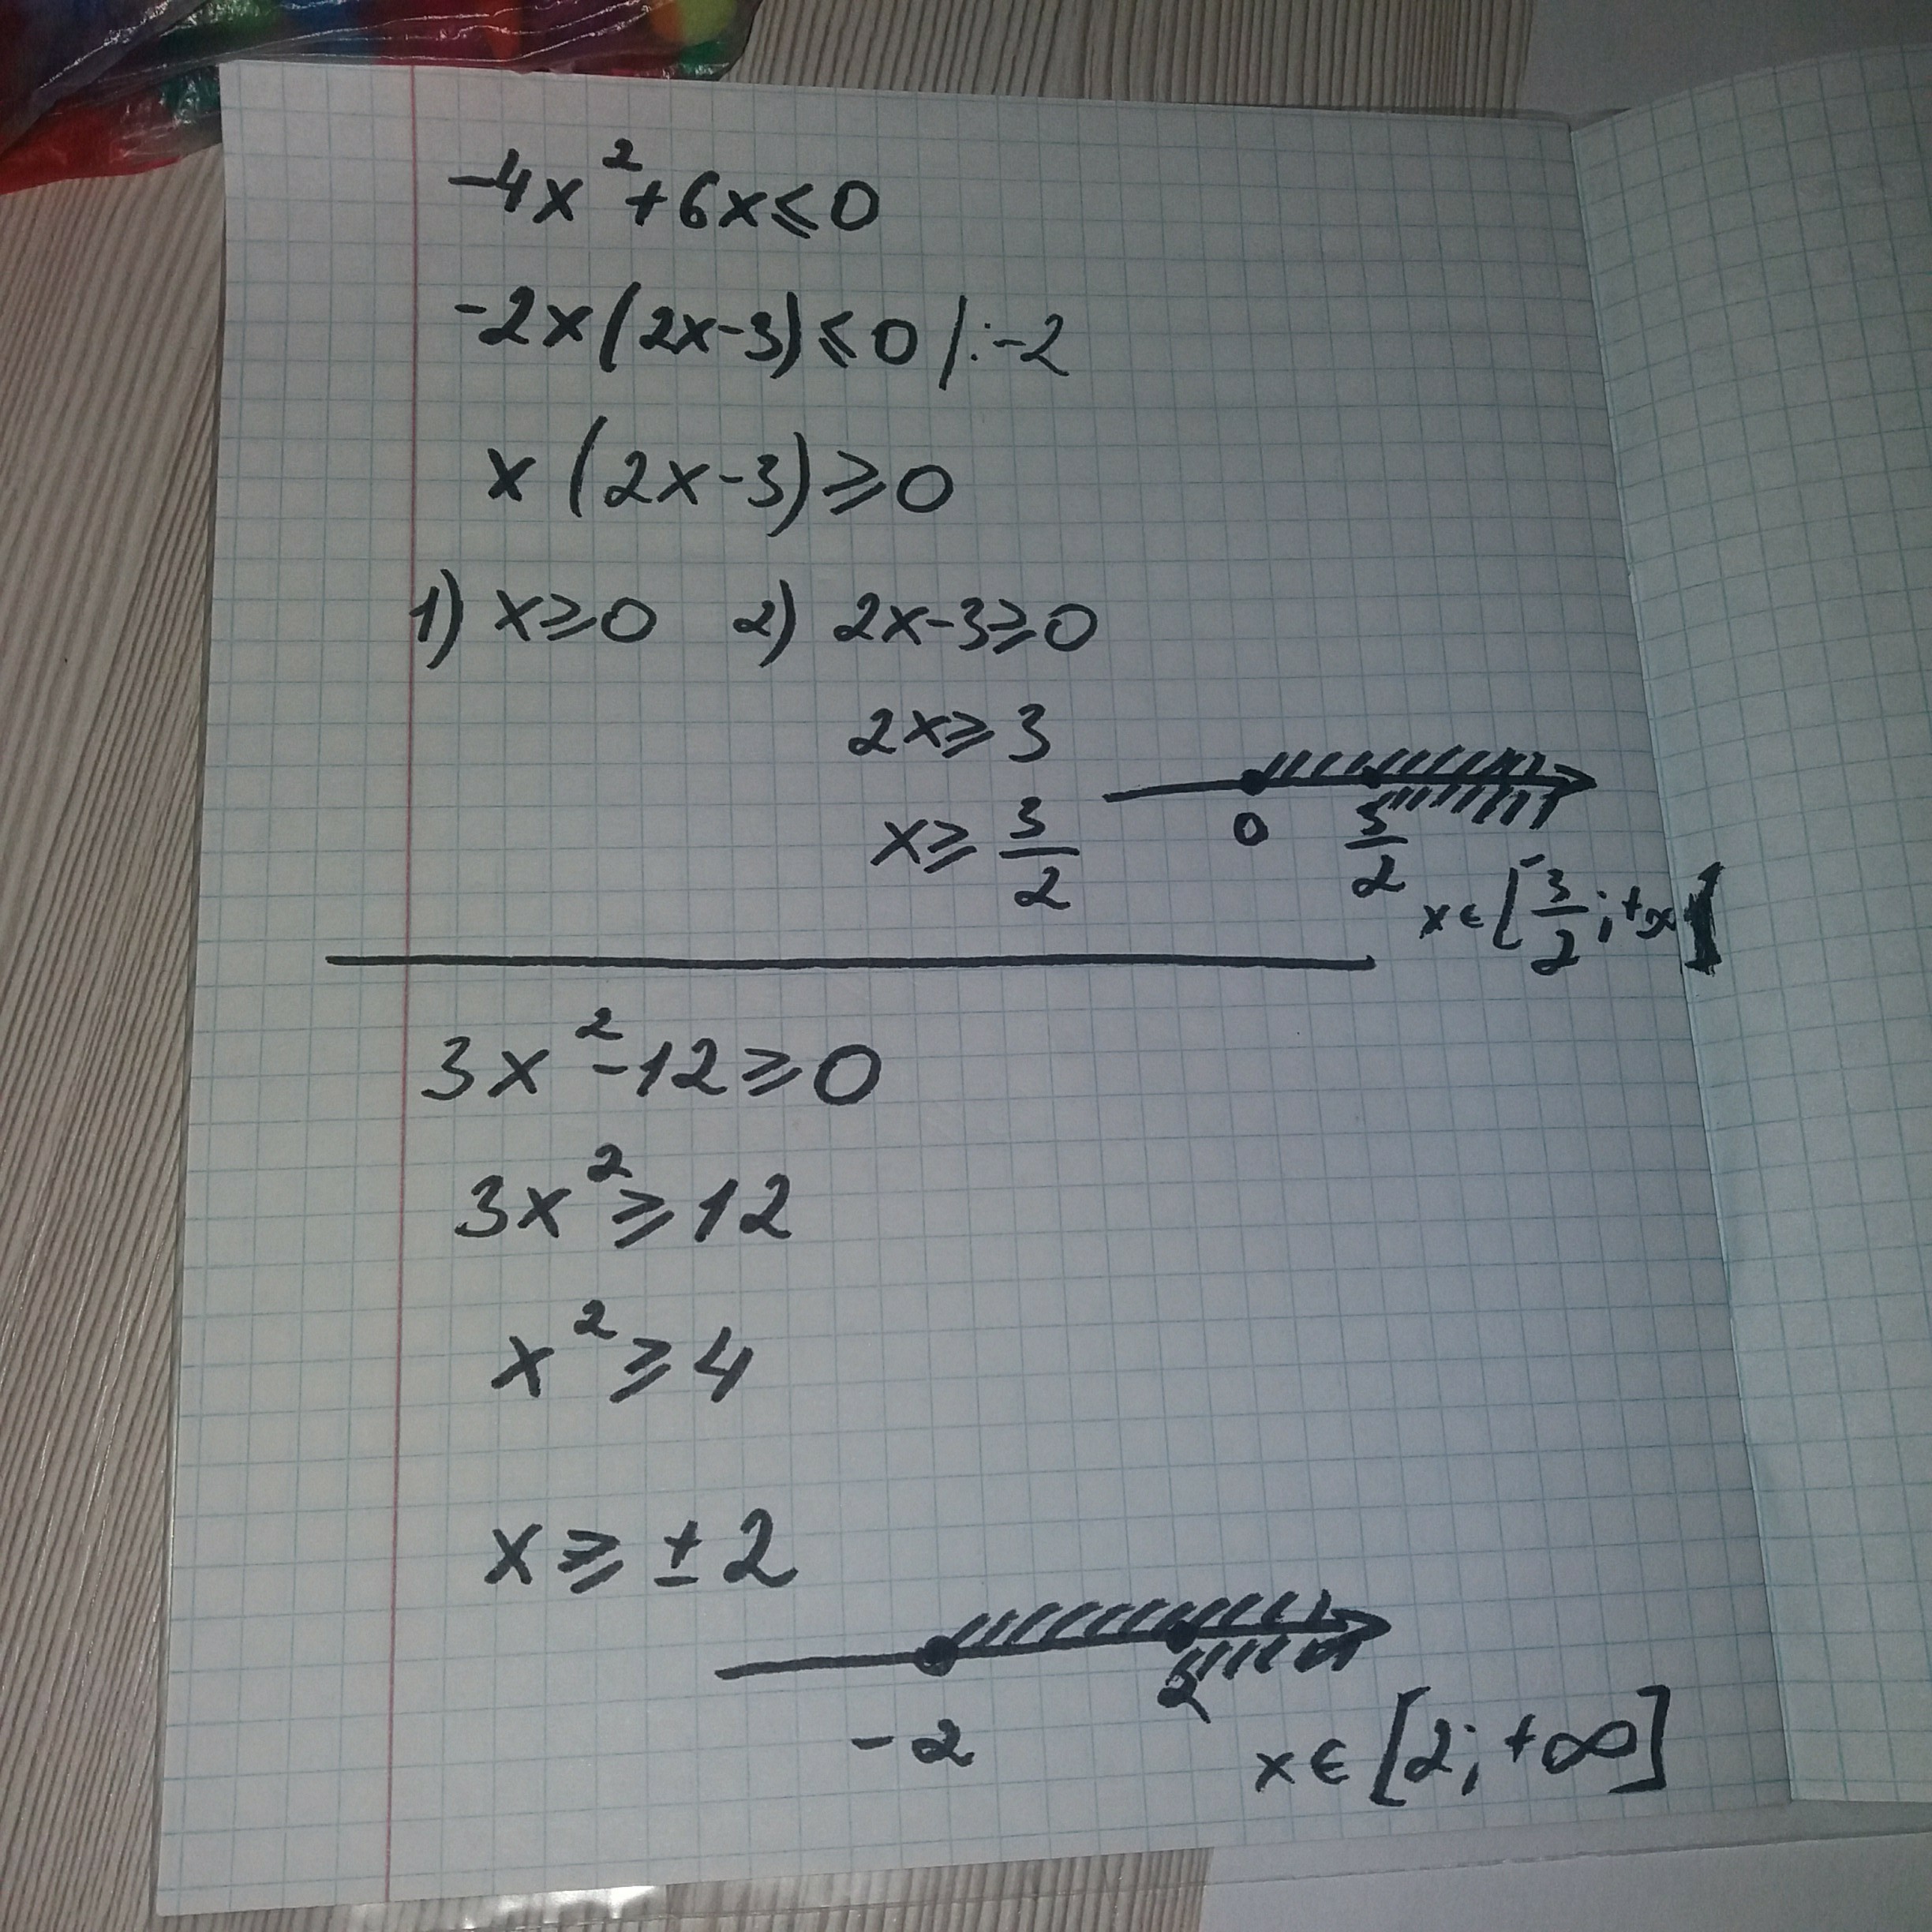 -4x²+6x⩽0
-2x(2x-3)⩽0 /:-2
x(2x-3)⩾0
1) x⩾0 2) 2x-3⩾0
2x⩾3
x⩾3/2
0 3/2
x∈[3/2;+∞]
3x²-12⩾0
3x²⩾12
x²⩾4
x⩾±2
-2 2
x∈[2;+∞]